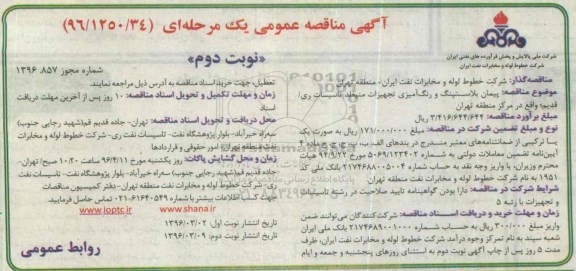 آگهی مناقصه عمومی یک مرحله‌ای (۹۶/۱۲۵۰/۳۴)
شرکت ملی پالایش و پخش فرآورده های نفتی ایران
شرکت خطوط لوله و مخابرات نفت ایران
«نوبت دوم»
شماره مجوز ۱۳۹۶.۸۵۷
مناقصه‌گذار: شرکت خطوط لوله و مخابرات نفت ایران- منطقه تهران
موضوع مناقصه: پیمان پلاستینگ و رنگ‌آمیزی تجهیزات منطقه تاسیسات ری/
قدیم/ واقع در مرکز منطقه تهران
مبلغ برآورد مناقصه: ۳/۴۱۶/۶۴۲/۶۴۴ ریال
نوع و مبلغ تضمین شرکت در مناقصه: مبلغ ۱۷۱/۰۰۰/۰۰۰ ریال به صورت یک
یا ترکیبی از ضمانتنامه‌های معتبر مندرج در بندهای
آیین‌نامه تضمین معاملات دولتی به شماره ۱۲۳۴۰۲/ت۵۰۶۹ مورخ ۹۴/۹/۲۲ هیات
محترم وزیران، یا واریز وجه نقد به حساب شماره ۲۱۷۴۶۸۸۰۰۵۰۰۴ بانک ملی کد
۱۹۵۱ به نام شرکت خطوط لوله و مخابرات نفت منطقه تهران
شرایط شرکت در مناقصه: دارا بودن گواهینامه تایید صلاحیت در رشته تاسیسات
و تجهیزات با رتبه ۵
زمان و مهلت خرید و دریافت اسناد مناقصه: شرکت‌کنندگان می‌توانند ضمن
واریز مبلغ ۳۰۰/۰۰۰ ریال به حساب شماره ۲۱۷۴۶۸۹۰۰۱۰۰۰ بانک ملی ایران
شعبه سپند به نام تمرکز وجوه درآمد شرکت خطوط لوله و مخابرات نفت ایران، ظرف
مدت ۵ روز پس از چاپ آگهی نوبت دوم به استثنای روزهای پنجشنبه و جمعه و ایام
تعطیل، جهت خرید اسناد مناقصه به آدرس ذیل مراجعه نمایند.
زمان و مهلت تکمیل و تحویل اسناد مناقصه: ۱۰ روز پس از آخرین مهلت دریافت
اسناد
محل دریافت و تحویل اسناد مناقصه: تهران- جاده قدیم قم(شهید رجایی جنوب)
سه‌راه خیرآباد- بلوار پژوهشگاه نفت- تاسیسات نفت ری- شرکت خطوط لوله و مخابرات
نفت منطقه تهران- امور حقوقی و قراردادها
زمان و محل گشایش پاکات: روز یکشنبه مورخ ۹۶/۴/۱۱ ساعت ۱۰:۲۰ صبح؛ تهران-
جاده قدیم قم(شهید رجایی جنوب)- سه‌راه خیرآباد- بلوار پژوهشگاه نفت- تاسیسات نفت
ری- شرکت خطوط لوله و مخابرات نفت منطقه تهران- دفتر کمیسیون مناقصات
جهت کسب اطلاعات بیشتر با شماره ۶۱۶۴۰۵۴۹-۰۲۱ تماس حاصل فرمایید.
www.shana.ir
www.ioptc.ir
تاریخ انتشار نوبت اول: ۱۳۹۶/۰۳/۰۲
تاریخ انتشار نوبت دوم: ۱۳۹۶/۰۳/۰۹
روابط عمومی